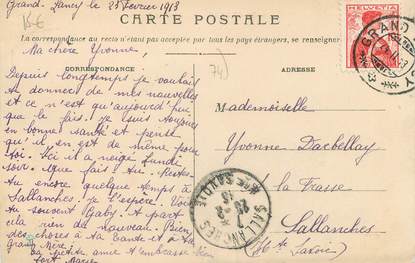 Grand-Lancy le 25 Février 1913
15€
CARTE POSTALE
La correspondance au recto n'étant pas acceptée par tous les pays étrangers, se renseigner
HELVETIA
GRAND
Ma chère Yvonne,
74
CORRESPONDANCE
ADRESSE
Depuis longtemps je voulais
te donner de mes nouvelles
et ce n'est qu'aujourd'hui
que je le fais. Je suis toujours
en bonne santé et pense
qu'il en est de même pour
toi. Ici il a neigé lundi
soir. Que fais-tu. Restes-
tu encore quelque temps à
Sallanches, je l'espère. Vous
souvent Gaby. A part
cela rien de nouveau. Bien
des choses à ta tante et à ta
Grand Mère.
Ta petite amie t'embrasse bien
fort
Mademoiselle
Yvonne Darbellay
à la Frasse
Sallanches
Hte Savoie
SALLANCHES
HTE SAVOIE